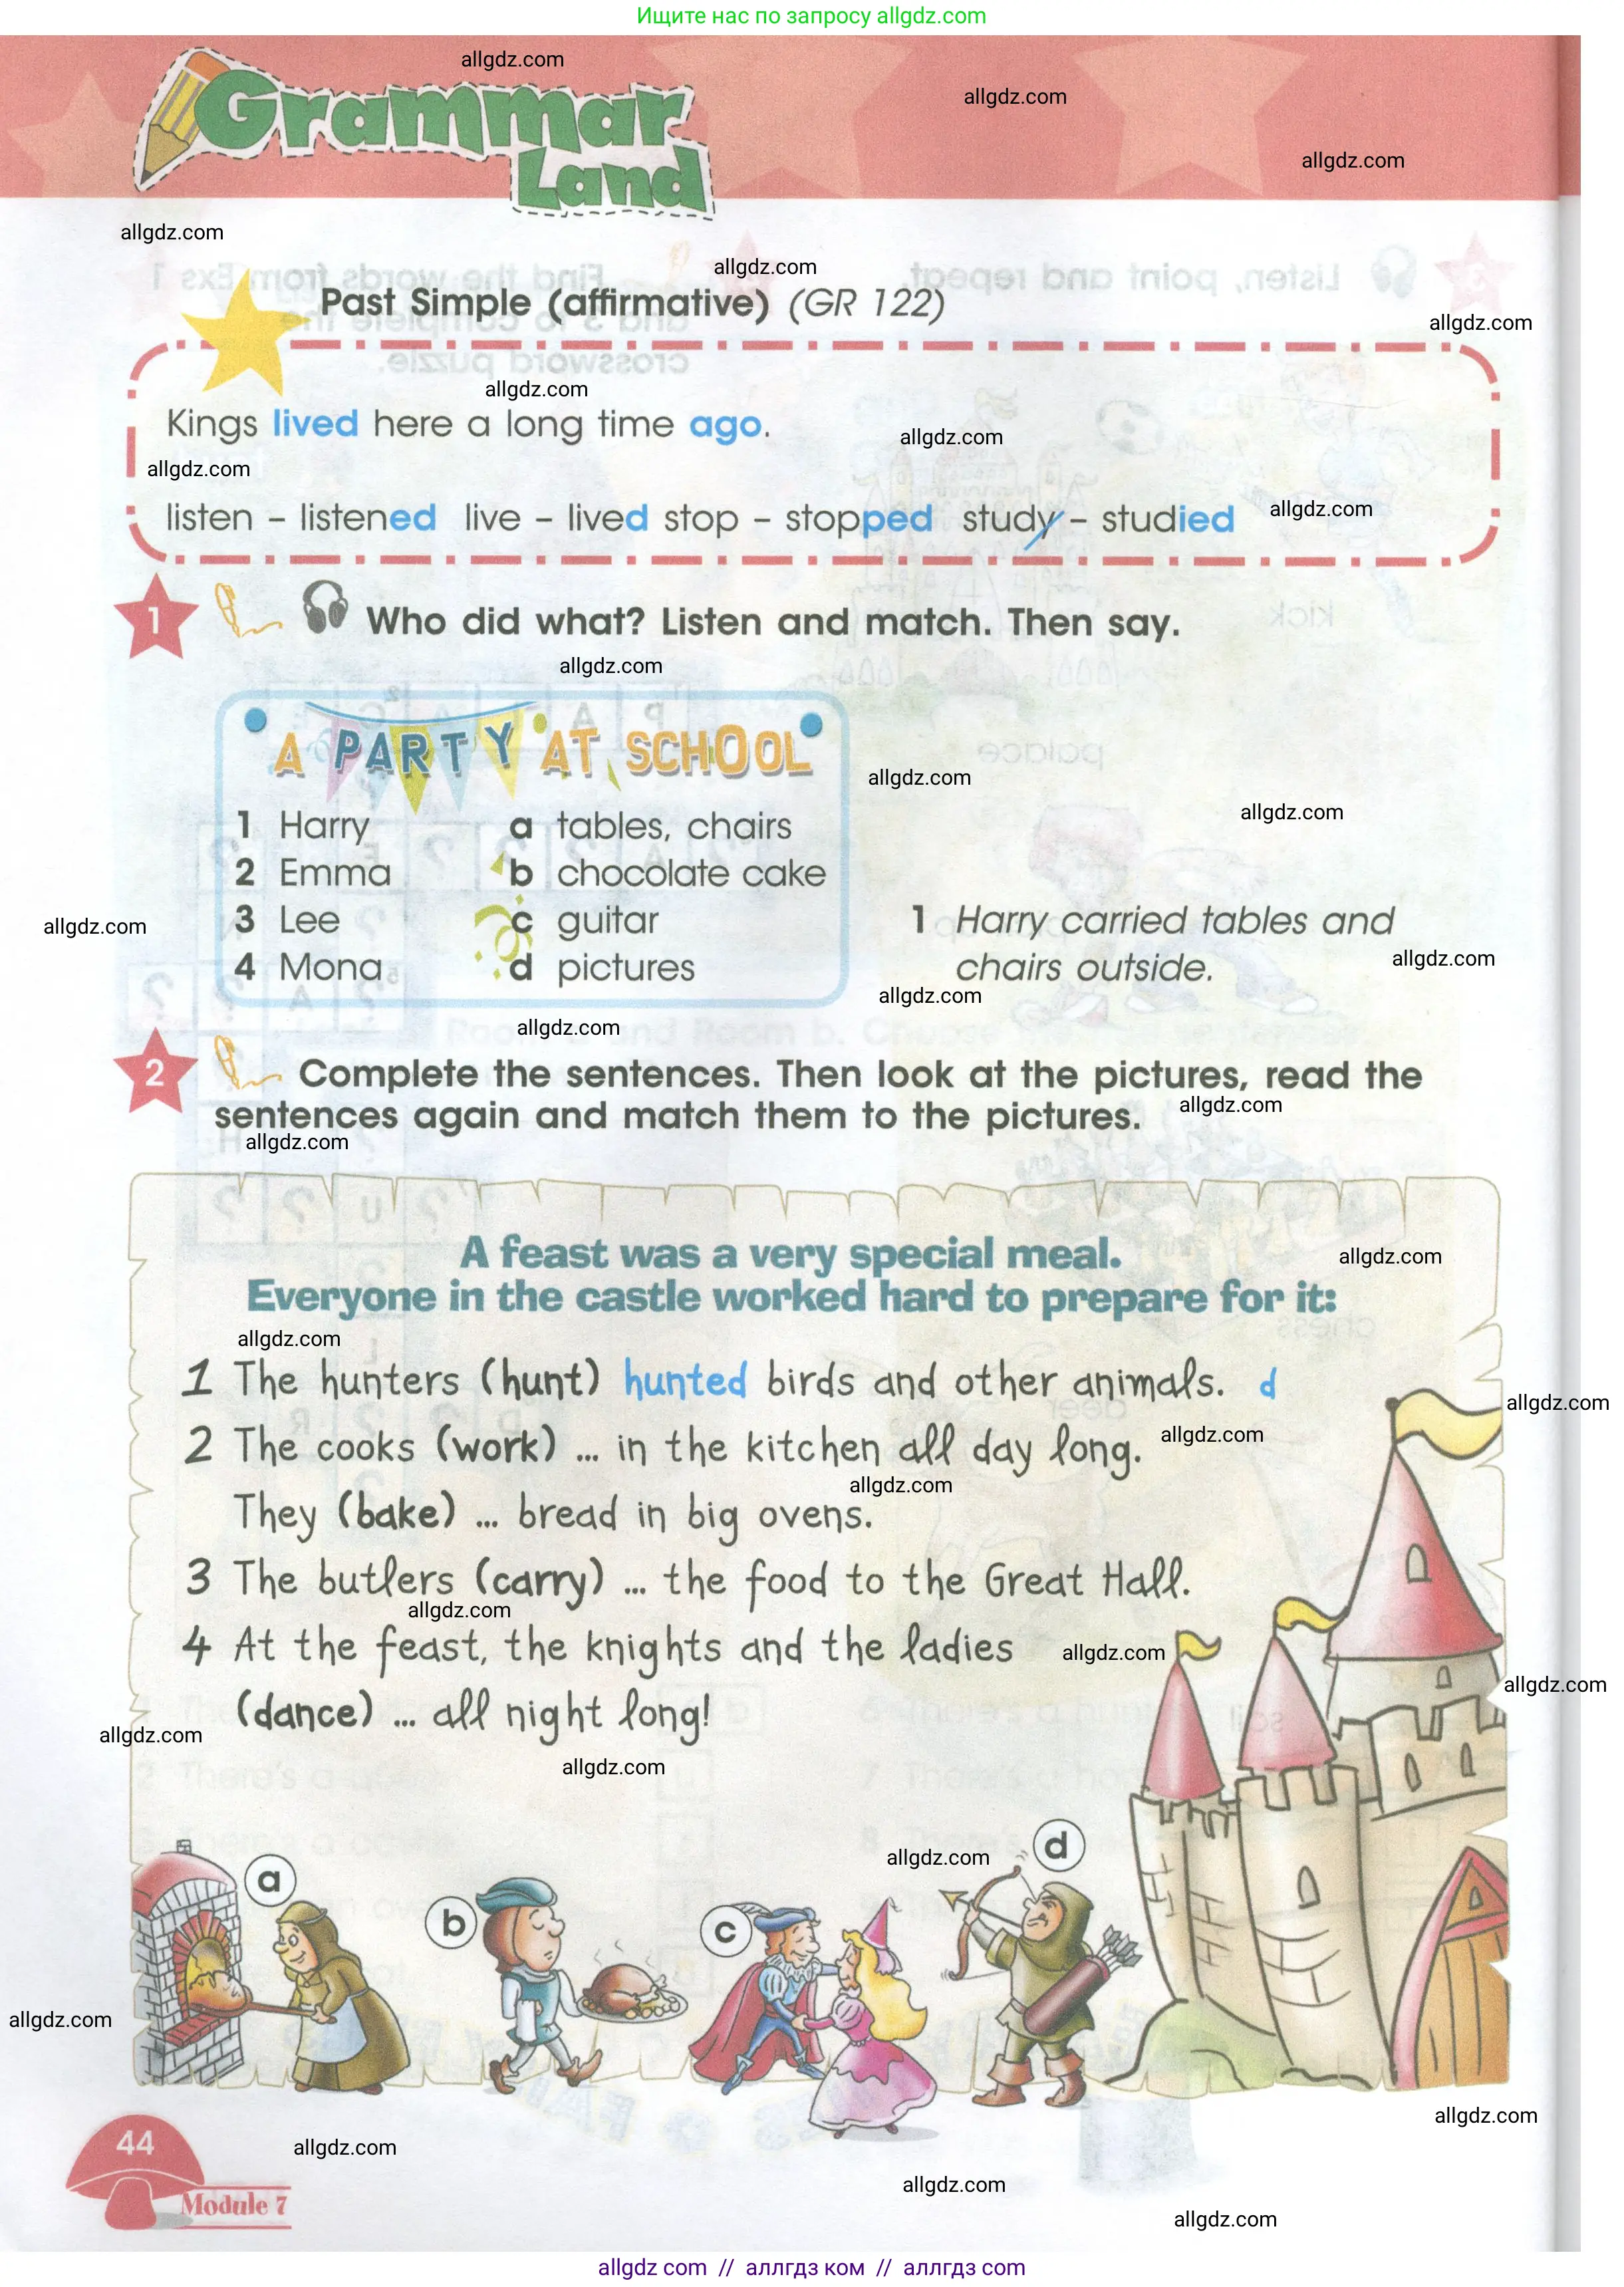 Ищите нас по запросу allgdz.com
allgdz.com
Grammar
allgdz.com
allgdz.com
Land
allgdz.com
allgdz.com
Past Simple (affirmative) (GR 122)
allgdz.com
allgdz.com
Kings lived here a long time ago.
allgdz.com
allgdz.com
listen – listened live – lived stop – stopped study – studied
allgdz.com
1 Who did what? Listen and match. Then say.
allgdz.com
A PARTY AT SCHOOL
allgdz.com
allgdz.com
1 Harry a tables, chairs
2 Emma b chocolate cake
3 Lee c guitar
4 Mona d pictures
allgdz.com
1 Harry carried tables and
chairs outside.
allgdz.com
allgdz.com
allgdz.com
2 Complete the sentences. Then look at the pictures, read the
sentences again and match them to the pictures.
allgdz.com
allgdz.com
A feast was a very special meal.
allgdz.com
Everyone in the castle worked hard to prepare for it:
allgdz.com
1 The hunters (hunt) hunted birds and other animals. d
allgdz.com
2 The cooks (work) ... in the kitchen all day long.
allgdz.com
allgdz.com
They (bake) ... bread in big ovens.
3 The butlers (carry) ... the food to the Great Hall.
allgdz.com
4 At the feast, the knights and the ladies
allgdz.com
allgdz.com
(dance) ... all night long!
allgdz.com
allgdz.com
allgdz.com
d
a
b
c
allgdz.com
allgdz.com
44
allgdz.com
allgdz.com
Module 7
allgdz.com
allgdz.com // аллгдз ком // аллгдз com